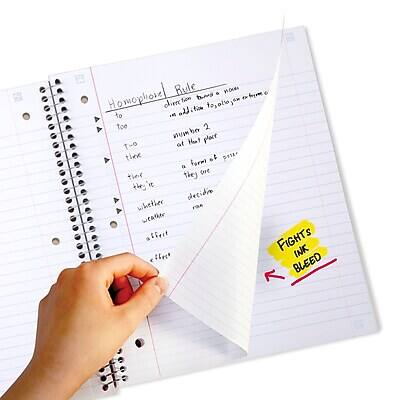 Homophone Rule
to direction toward a noun
too in addition to, also, an extreme
two number 2
there at that place
their a form of
they're they are
whether
weather
affect
effect
FIGHTS
INK
BLEED